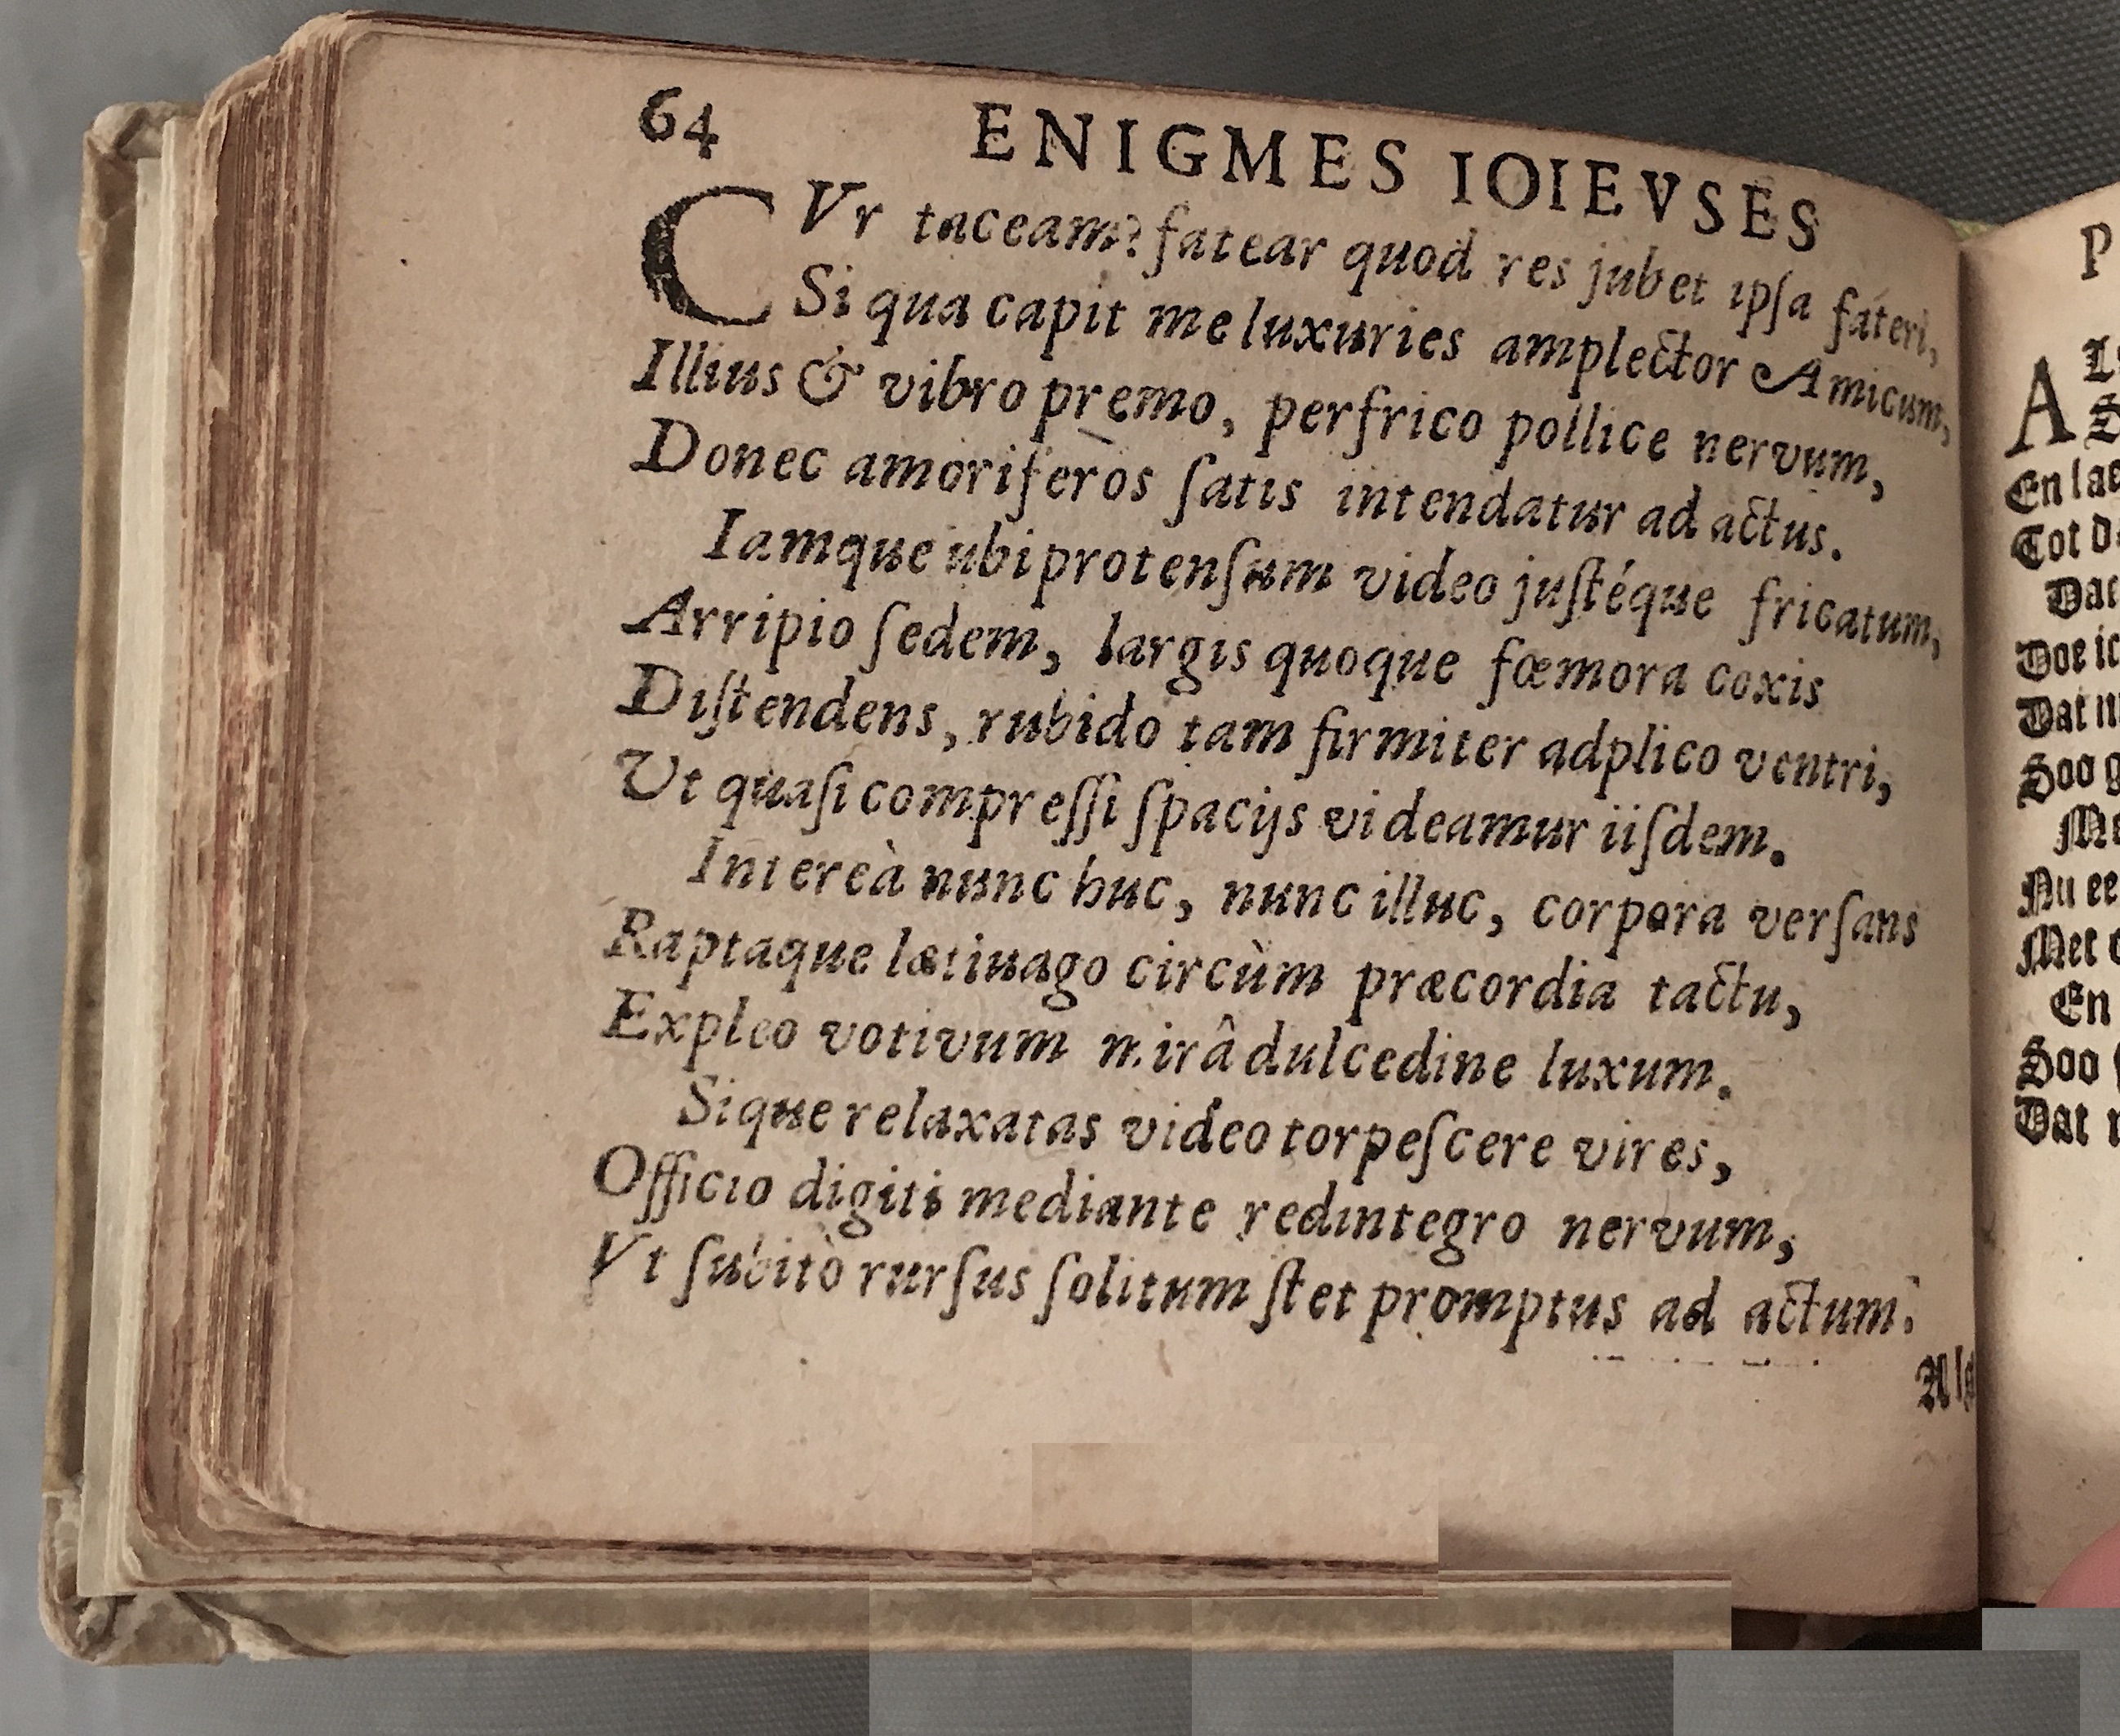 64 ENIGMES IOIEVSES
CVr taceam? fatear quod res jubet ipſa fateri,
Si qua capit me luxuries amplector Amicum,
Illius & vibro premo, perfrico pollice nervum,
Donec amoriferos ſatis intendatur ad actus.
Iamque ubi protenſum video juſtéque fricatum,
Arripio ſedem, largis quoque fœmora coxis
Diſtendens, rubido tam firmiter adplico ventri,
Ut quaſi compreſſi ſpacijs videamur iiſdem.
Intereà nunc huc, nunc illuc, corpora verſans
Raptaque lætiuago circùm præcordia tactu,
Expleo votivum mirâ dulcedine luxum.
Sique relaxatas video torpeſcere vires,
Officio digiti mediante redintegro nervum,
Vt ſubitò rurſus ſolitum ſtet promptus ad actum.
Als
P
A
En lae
Tot
Dat
Doe ic
Dat
Soo g
Nu ee
Met
En
Soo
Dat